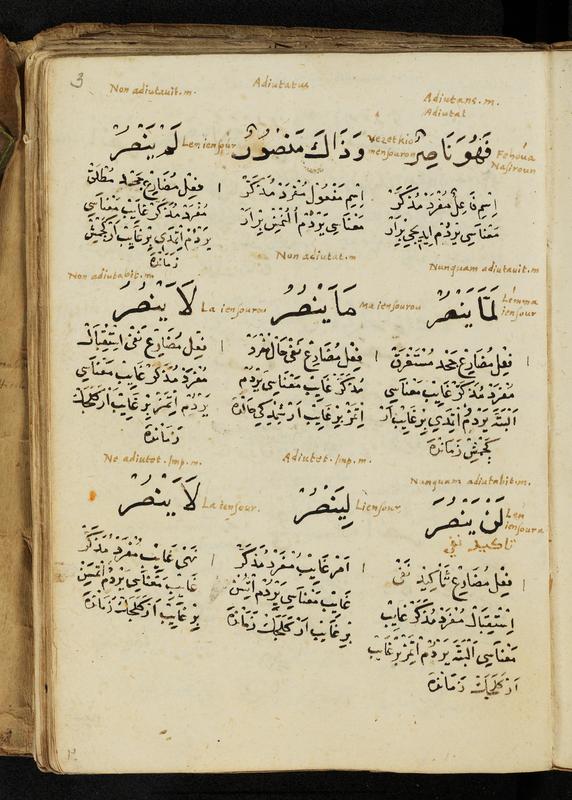 3
Non adiutauit. m.
Adiutatus
Adiutans. m.
Adiutat
فَهُوَ نَاصِرٌ
Fehoúa
Nasiroun
وَذَاكَ مَنْصُورٌ
Vezetkio
mensouron
لَمْ يَنْصُرْ
Len iensour
اِسِم فَاعِلْ مُفْرَدْ مُذَكَّرْ
مَعْنَاسِى يَرْدُم اِيدِيجِى بِرْ اَرْ
اِسِم مَفْعُولْ مُفْرَدْ مُذَكَّرْ
مَعْنَاسِى يَرْدُم اُلُنْمِشْ بِرْ اَرْ
فِعِل مُضَارِعْ جَحَد مُطْلَقْ
مُفْرَدْ مُذَكَّرْ غَايِبْ مَعْنَاسِى
يَرْدُم اِتْمَدِى بِرْ غَايِبْ اَرْ كَچْمِشْ
زَمَانْدَه
Nunquam adiutauit. m
Non adiutat. m
Non adiutabit. m
لَمَّا يَنْصُرْ
Lémma
iensour
مَا يَنْصُرُ
Ma iensourou
لَا يَنْصُرُ
La iensourou
فِعِل مُضَارِعْ جَحَد مُسْتَغْرَقْ
مُفْرَدْ مُذَكَّرْ غَايِبْ مَعْنَاسِى
اَلْبَتَّه يَرْدُم اِتْمَدِى بِرْ غَايِبْ اَرْ
كَچْمِشْ زَمَانْدَه
فِعِل مُضَارِعْ نَفْى حَالْ مُفْرَدْ
مُذَكَّرْ غَايِبْ مَعْنَاسِى يَرْدُم
اِتْمَزْ بِرْ غَايِبْ اَرْ شِمْدِكِى حَالْدَه
فِعِل مُضَارِعْ نَفْى اِسْتِقْبَالْ
مُفْرَدْ مُذَكَّرْ غَايِبْ مَعْنَاسِى
يَرْدُم اِتْمَزْ بِرْ غَايِبْ اَرْ كَلَجَكْ
زَمَانْدَه
Nunquam adiutabit. m.
Adiutet. Imp. m.
Ne adiutet. Imp. m.
لَنْ يَنْصُرَ
Len
iensoura
تأكيد نفي
لِيَنْصُرْ
Liensour
لَا يَنْصُرْ
La iensour.
فِعِل مُضَارِعْ تَأْكِيدْ نَفْى
اِسْتِقْبَالْ مُفْرَدْ مُذَكَّرْ غَايِبْ
مَعْنَاسِى اَلْبَتَّه يَرْدُم اِتْمَزْ بِرْ غَايِبْ
اَرْ كَلَجَكْ زَمَانْدَه
اَمْرِ غَايِبْ مُفْرَدْ مُذَكَّرْ
غَايِبْ مَعْنَاسِى يَرْدُم اِتْسُنْ
بِرْ غَايِبْ اَرْ كَلَجَكْ زَمَانْدَه
نَهْىِ غَايِبْ مُفْرَدْ مُذَكَّرْ
غَايِبْ مَعْنَاسِى يَرْدُم اِتْمَسِنْ
بِرْ غَايِبْ اَرْ كَلَجَكْ زَمَانْدَه